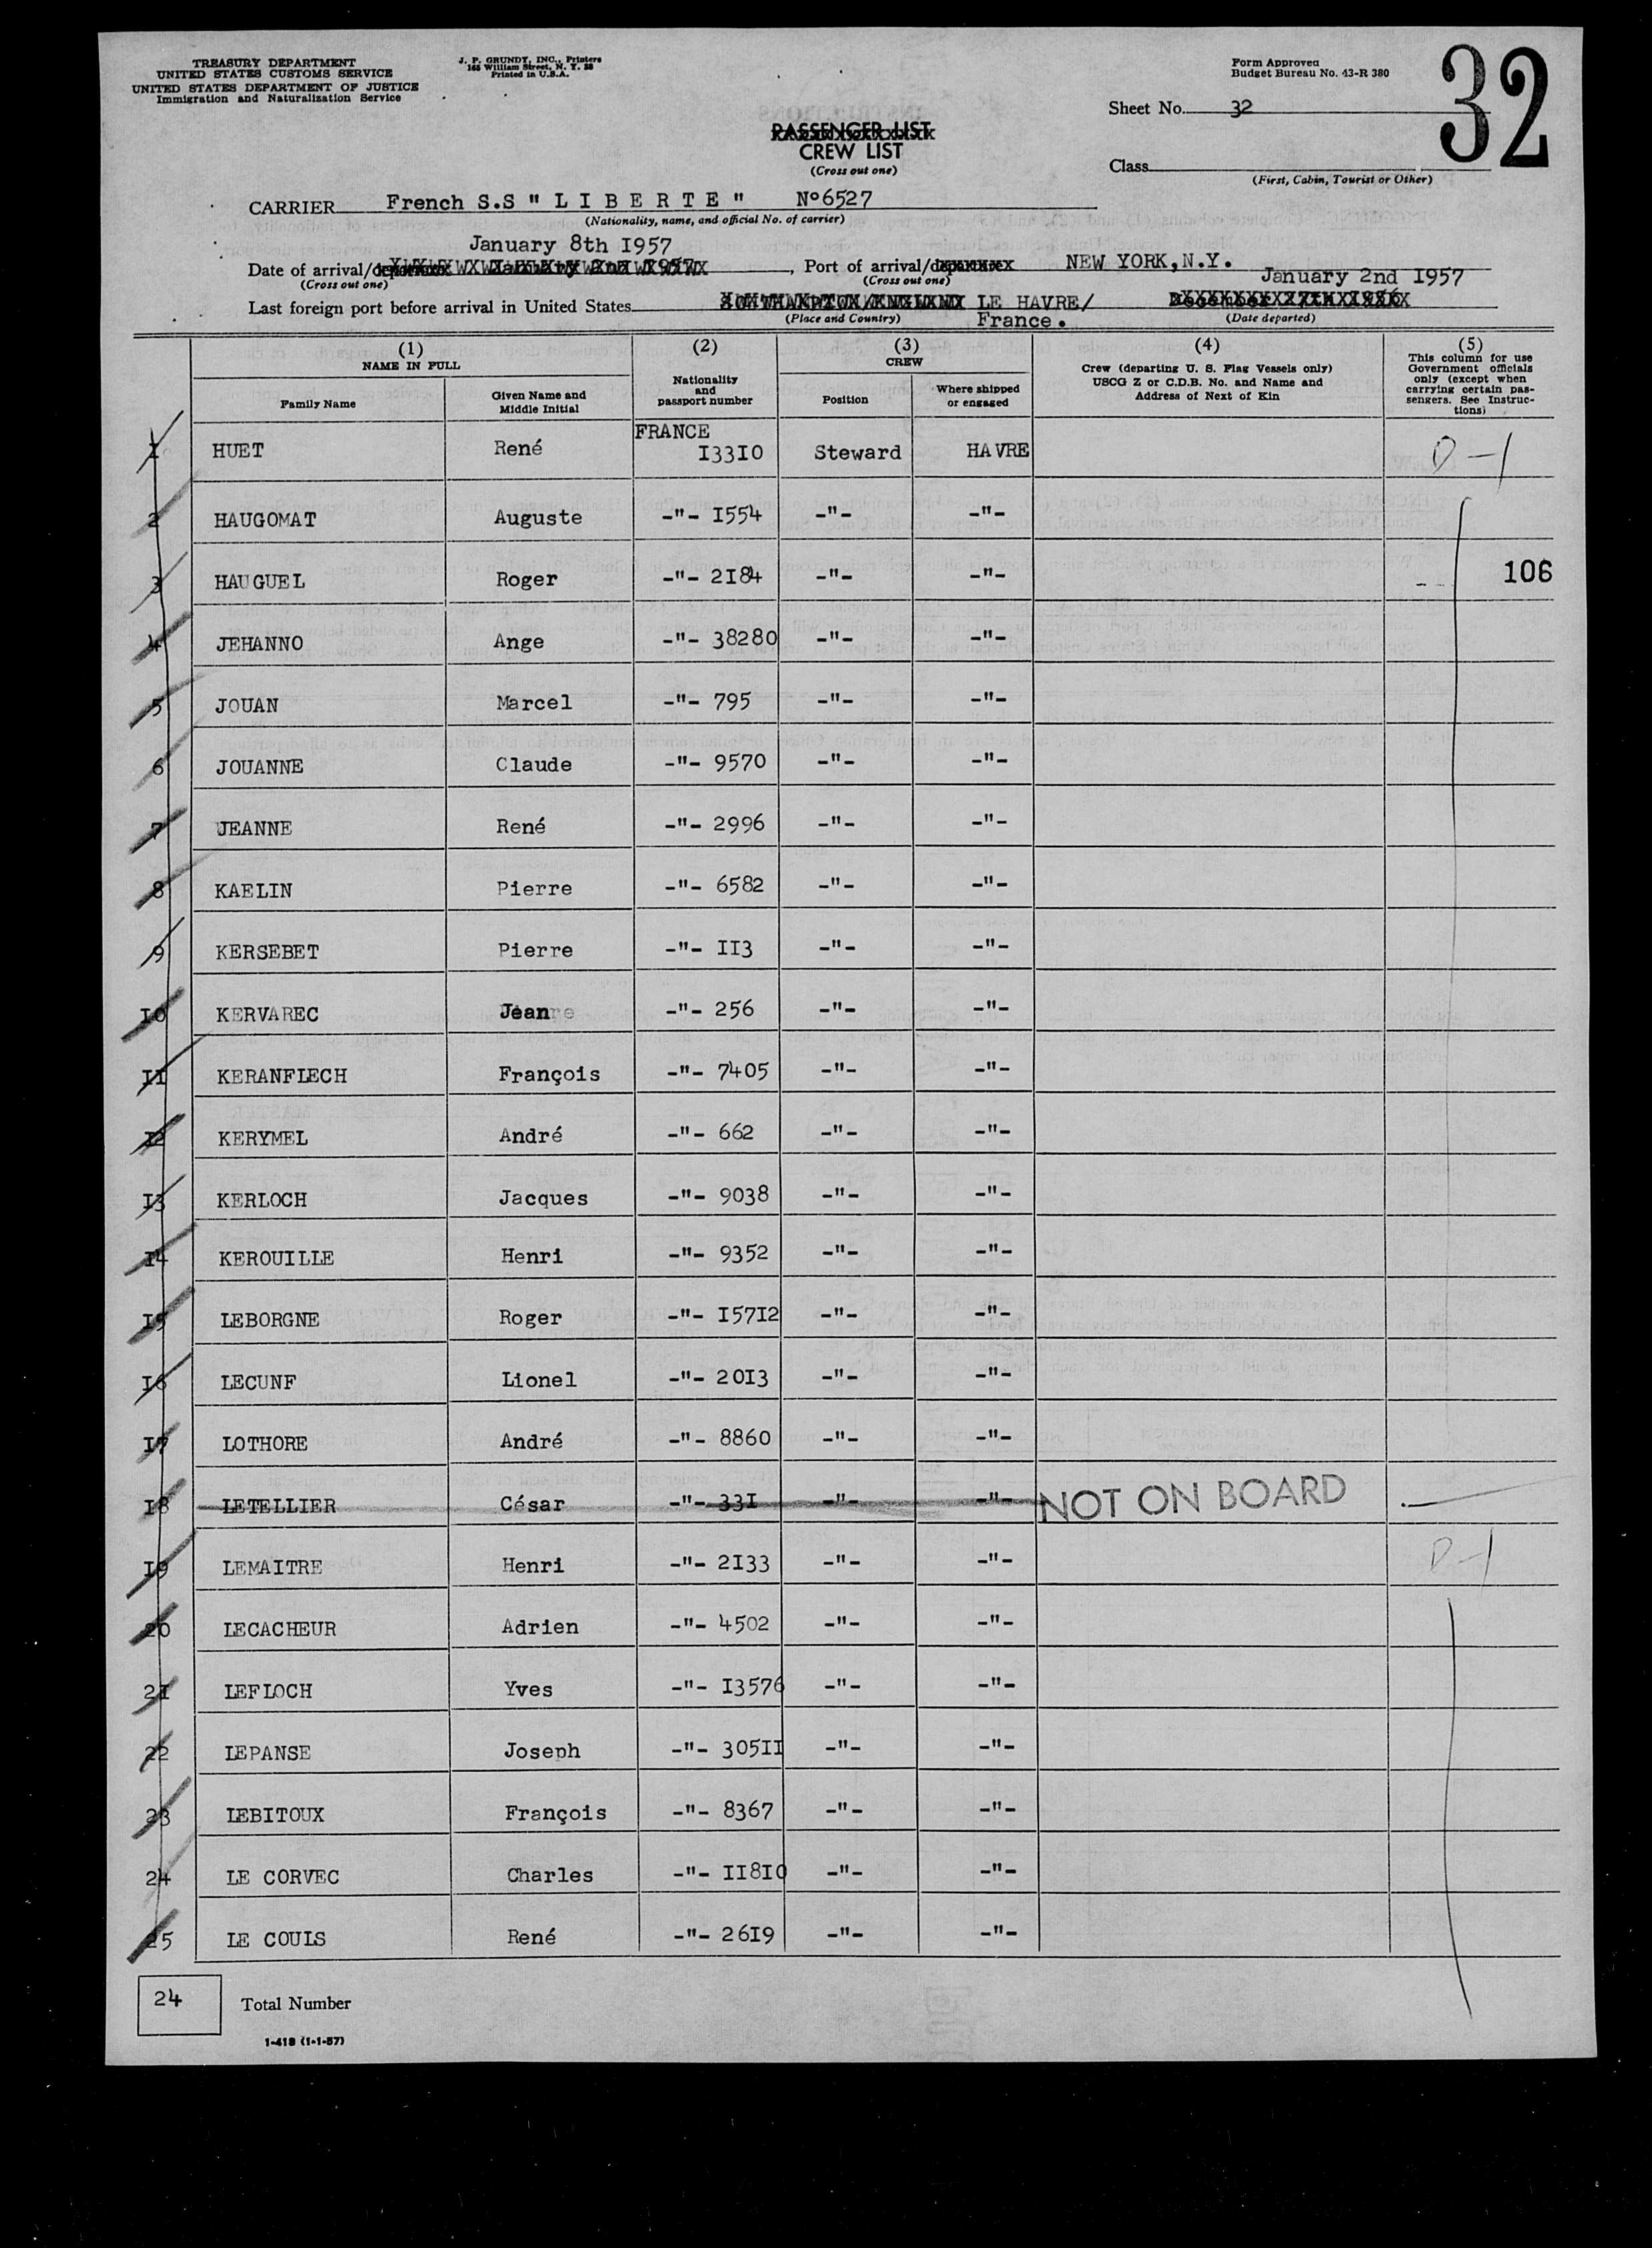 TREASURY DEPARTMENT
UNITED STATES CUSTOMS SERVICE
UNITED STATES DEPARTMENT OF JUSTICE
Immigration and Naturalization Service
J. P. GRUNDY, INC., Printers
165 William Street, N. Y. 38
Printed in U.S.A.
Form Approved
Budget Bureau No. 43-R 380
32
Sheet No. 32
PASSENGER LIST
CREW LIST
(Cross out one)
Class
(First, Cabin, Tourist or Other)
CARRIER French S.S " L I B E R T E " N°6527
(Nationality, name, and official No. of carrier)
January 8th I957
Date of arrival/departure January 2nd I957, Port of arrival/departure NEW YORK,N.Y.
(Cross out one) (Cross out one)
January 2nd I957
Last foreign port before arrival in United States SOUTHAMPTON/ENGLAND LE HAVRE/ December 27th I956
(Place and Country) France. (Date departed)
(1) (2) (3) (4) (5)
NAME IN FULL CREW
Family Name
Given Name and Middle Initial
Nationality and passport number
Position
Where shipped or engaged
Crew (departing U. S. Flag Vessels only)
USCG Z or C.D.B. No. and Name and
Address of Next of Kin
This column for use
Government officials
only (except when
carrying certain pas-
sengers. See Instruc-
tions)
FRANCE
I HUET René I33I0 Steward HAVRE D-1
2 HAUGOMAT Auguste -"- I554 -"- -"-
3 HAUGUEL Roger -"- 2I84 -"- -"- 106
4 JEHANNO Ange -"- 38280 -"- -"-
5 JOUAN Marcel -"- 795 -"- -"-
6 JOUANNE Claude -"- 9570 -"- -"-
7 JEANNE René -"- 2996 -"- -"-
8 KAELIN Pierre -"- 6582 -"- -"-
9 KERSEBET Pierre -"- II3 -"- -"-
I0 KERVAREC Jean -"- 256 -"- -"-
II KERANFLECH François -"- 7405 -"- -"-
I2 KERYMEL André -"- 662 -"- -"-
I3 KERLOCH Jacques -"- 9038 -"- -"-
I4 KEROUILLE Henri -"- 9352 -"- -"-
I5 LEBORGNE Roger -"- I57I2 -"- -"-
I6 LECUNF Lionel -"- 20I3 -"- -"-
I7 LOTHORE André -"- 8860 -"- -"-
I8 LETELLIER César -"- 33I -"- -"- NOT ON BOARD
I9 LEMAITRE Henri -"- 2I33 -"- -"- D-1
20 LECACHEUR Adrien -"- 4502 -"- -"-
2I LEFLOCH Yves -"- I3576 -"- -"-
22 LEPANSE Joseph -"- 305II -"- -"-
23 LEBITOUX François -"- 8367 -"- -"-
24 LE CORVEC Charles -"- II8I0 -"- -"-
25 LE COUIS René -"- 26I9 -"- -"-
24 Total Number
1-418 (1-1-57)